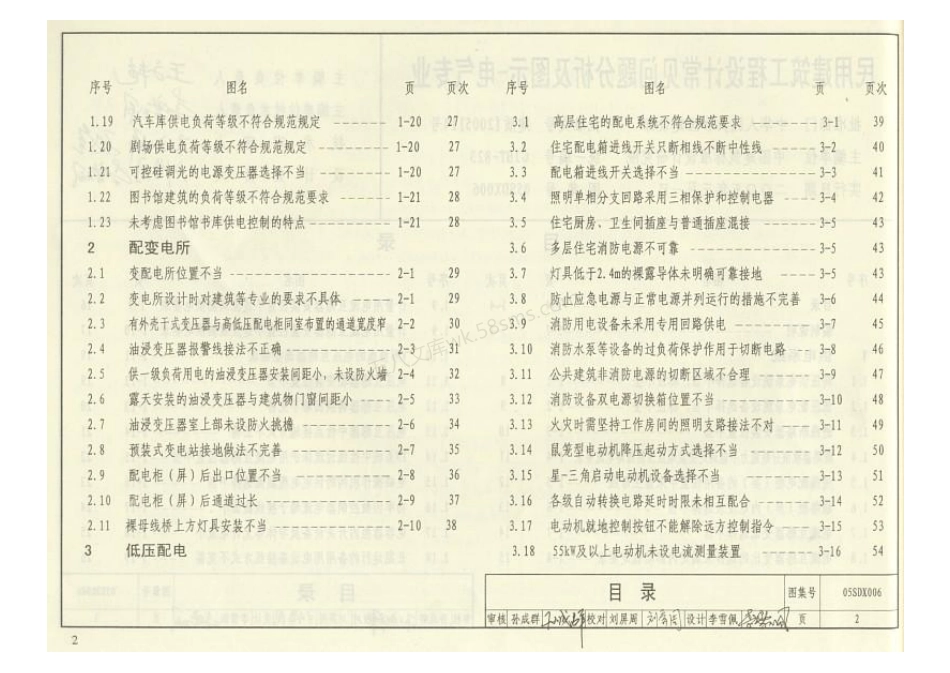 序号 图名 页 页次
1.19 汽车库供电负荷等级不符合规范规定 1-20 27
1.20 剧场供电负荷等级不符合规范规定 1-20 27
1.21 可控硅调光的电源变压器选择不当 1-20 27
1.22 图书馆建筑的负荷等级不符合规范要求 1-21 28
1.23 未考虑图书馆书库供电控制的特点 1-21 28
2 配变电所
2.1 变配电所位置不当 2-1 29
2.2 变电所设计时对建筑等专业的要求不具体 2-1 29
2.3 有外壳干式变压器与高低压配电柜同室布置的通道宽度窄 2-2 30
2.4 油浸变压器报警线接法不正确 2-3 31
2.5 供一级负荷用电的油浸变压器安装间距小，未设防火墙 2-4 32
2.6 露天安装的油浸变压器与建筑物门窗间距小 2-5 33
2.7 油浸变压器室上部未设防火挑檐 2-6 34
2.8 预装式变电站接地做法不完善 2-7 35
2.9 配电柜（屏）后出口位置不当 2-8 36
2.10 配电柜（屏）后通道过长 2-9 37
2.11 裸母线桥上方灯具安装不当 2-10 38
3 低压配电
序号 图名 页 页次
3.1 高层住宅的配电系统不符合规范要求 3-1 39
3.2 住宅配电箱进线开关只断相线不断中性线 3-2 40
3.3 配电箱进线开关选择不当 3-3 41
3.4 照明单相分支回路采用三相保护和控制电器 3-4 42
3.5 住宅厨房、卫生间插座与普通插座混接 3-5 43
3.6 多层住宅消防电源不可靠 3-5 43
3.7 灯具低于2.4m的裸露导体未明确可靠接地 3-5 43
3.8 防止应急电源与正常电源并列运行的措施不完善 3-6 44
3.9 消防用电设备未采用专用回路供电 3-7 45
3.10 消防水泵等设备的过负荷保护作用于切断电路 3-8 46
3.11 公共建筑非消防电源的切断区域不合理 3-9 47
3.12 消防设备双电源切换箱位置不当 3-10 48
3.13 火灾时需坚持工作房间的照明支路接法不对 3-11 49
3.14 鼠笼型电动机降压起动方式选择不当 3-12 50
3.15 星-三角启动电动机设备选择不当 3-13 51
3.16 各级自动转换电路延时时限未相互配合 3-14 52
3.17 电动机就地控制按钮不能解除远方控制指令 3-15 53
3.18 55kW及以上电动机未设电流测量装置 3-16 54
目 录 图集号 05SDX006
审核 孙成群 校对 刘屏周 设计 李雪佩 页 2
2